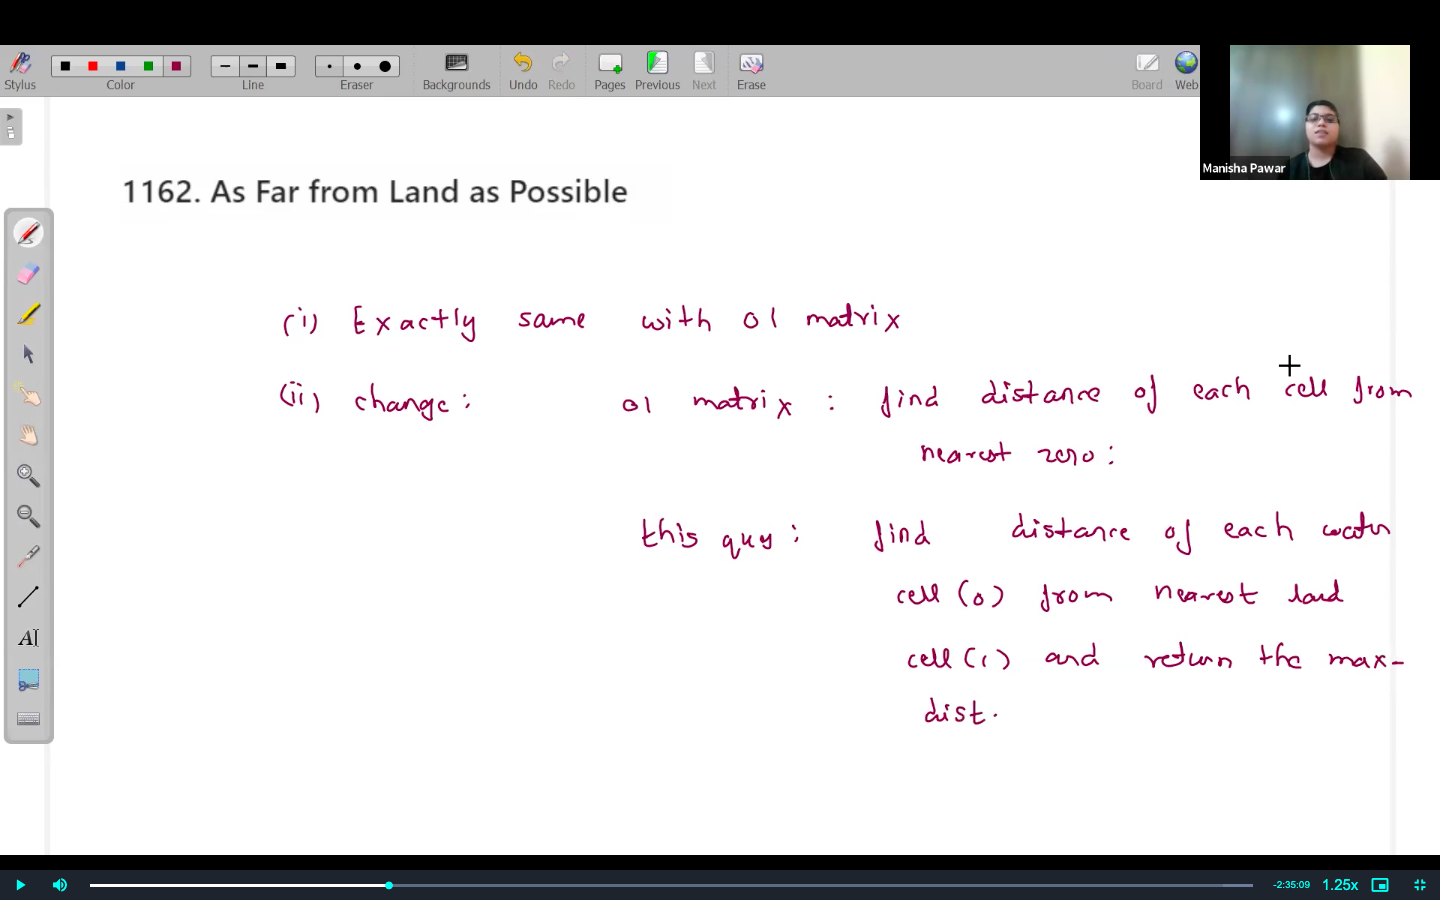 Stylus
Color
Line
Eraser
Backgrounds
Undo
Redo
Pages
Previous
Next
Erase
Board
Web
Manisha Pawar
1162. As Far from Land as Possible
(i) Exactly same with 01 matrix
(ii) change: 01 matrix : find distance of each cell from
nearest zero:
this quy: find distance of each water
cell (0) from nearest land
cell (1) and return the max-
dist.
AI
-2:35:09
1.25x